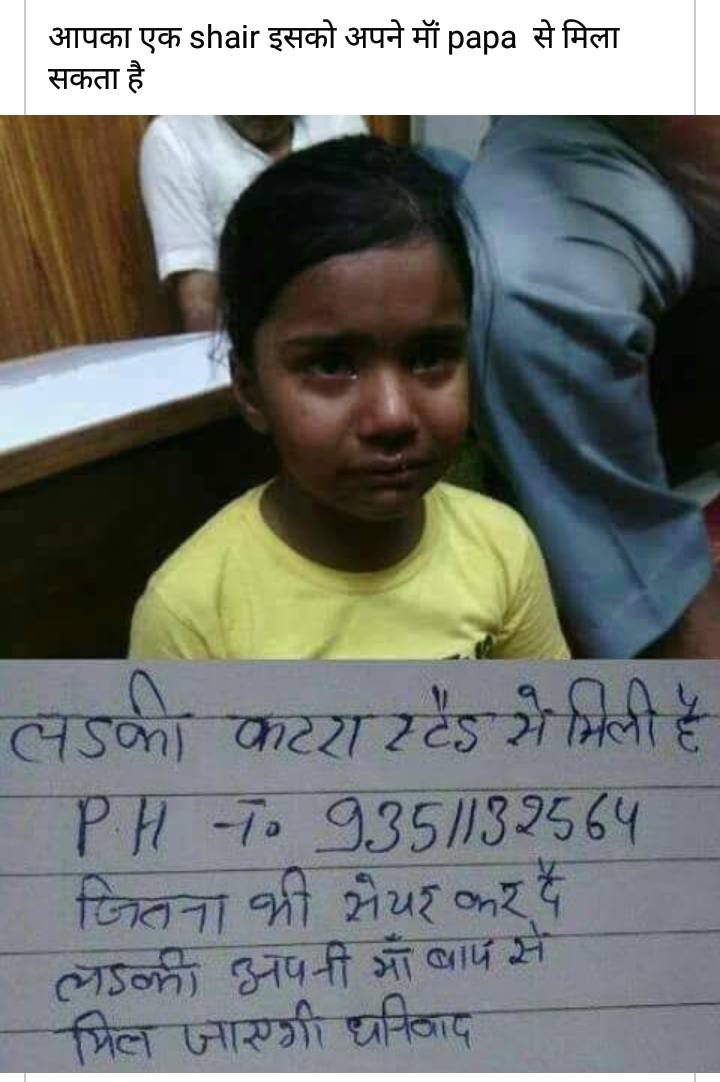 आपका एक shair इसको अपने मॉं papa से मिला
सकता है
लडकी कटरा स्टैड से मिली है
P.H न० 9351132564
जितना भी सेयर कर दै
लडकी अपनी माँ बाप से
मिल जाएगी धनिवाद